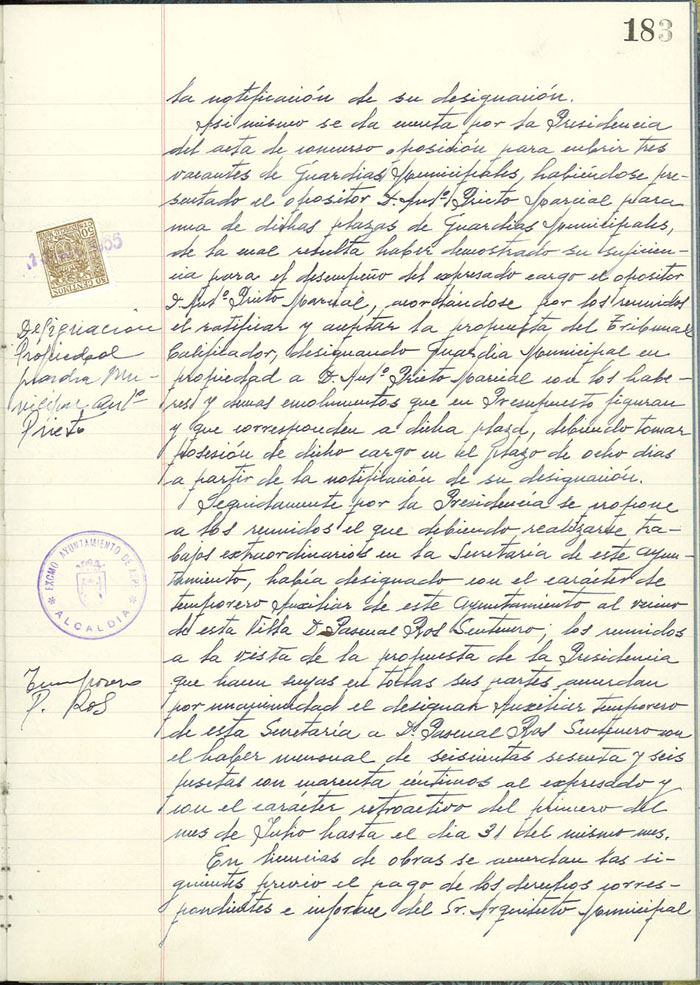 183
la notificación de su designación.
Asi mismo se da cuenta por la Presidencia
del acta de concurso oposición para cubrir tres
vacantes de Guardias Municipales, habiéndose pre-
sentado el opositor D. Antº Prieto Marcial para
una de dichas plazas de Guardias Municipales,
de la cual resulta haber demostrado su suficien-
cia para el desempeño del expresado cargo el opositor
D. Antº Prieto Marcial, acordándose por los reunidos
el ratificar y aceptar la propuesta del Tribunal
Calificador, designando Guardia Municipal en
propiedad a D. Antº Prieto Marcial con los habe-
res y demas emolumentos que en Presupuesto figuran
y que corresponden a dicha plaza, debiendo tomar
posesión de dicho cargo en el plazo de ocho dias
a partir de la notificación de su designación.
Seguidamente por la Presidencia se propone
a los reunidos el que debiendo realizarse, tra-
bajos extraordinarios en la Secretaría de este Ayun-
tamiento, había designado con el carácter de
temporero Auxiliar de este Ayuntamiento al vecino
de esta Villa D. Pascual Ros Sentenero; los reunidos
a la vista de la propuesta de la Presidencia
que hacen suyas en todas sus partes, acuerdan
por unanimidad el designar Auxiliar temporero
de esta Secretaría a D. Pascual Ros Sentenero con
el haber mensual de seiscientas sesenta y seis
pesetas con cuarenta céntimos al expresado y
con el carácter retroactivo del primero del
mes de Julio hasta el dia 31 del mismo mes.
En licencias de obras se acuerdan las si-
guientes previo el pago de los derechos corres-
pondientes e informe del Sr. Arquitecto Municipal
50 CENTIMOS
Designación
Propiedad
guardia Mu-
nicipal Antº
Prieto
EXCMO AYUNTAMIENTO DE
ALCALDIA
Temporero
P. Ros